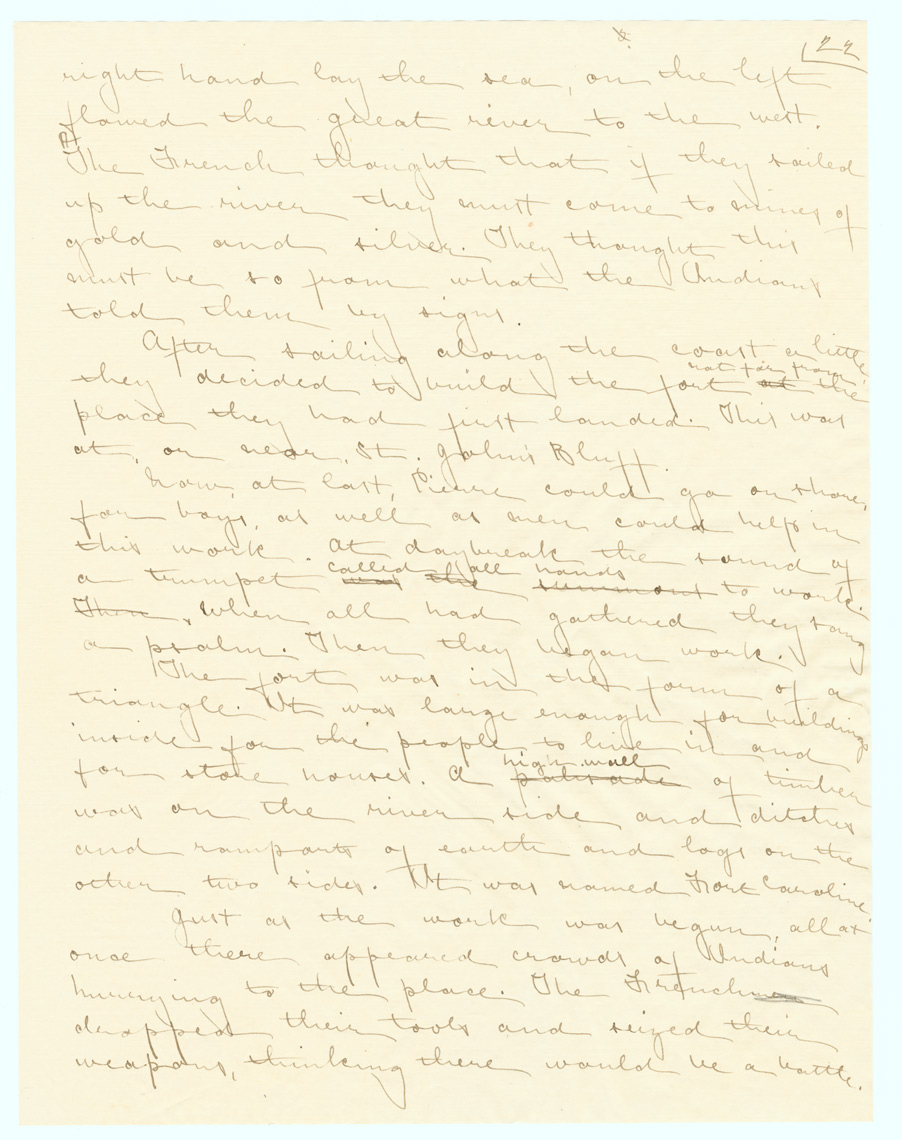 22
right hand lay the sea, on the left
flowed the great river to the west.
The French thought that if they sailed
up the river they must come to mines of
gold and silver. They thought this
must be so from what the Indians
told them by signs.
After sailing along the coast a little,
not far from
they decided to build the fort at the
place they had first landed. This was
at, or near, St. John's Bluff.
Now, at last, Pierre could go on shore,
for boys, as well as men could help in
this work. At daybreak the sound of
called all hands
a trumpet was the summons to work.
Then, when all had gathered they sang
a psalm. Then they began work.
The fort was in the form of a
triangle. It was large enough for buildings
inside for the people to live in and
high wall
for store houses. A palisade of timber
was on the river side and ditches
and ramparts of earth and logs on the
other two sides. It was named Fort Caroline.
Just as the work was begun, all at
once there appeared crowds of Indians
hurrying to the place. The Frenchmen
dropped their tools and seized their
weapons, thinking there would be a battle.